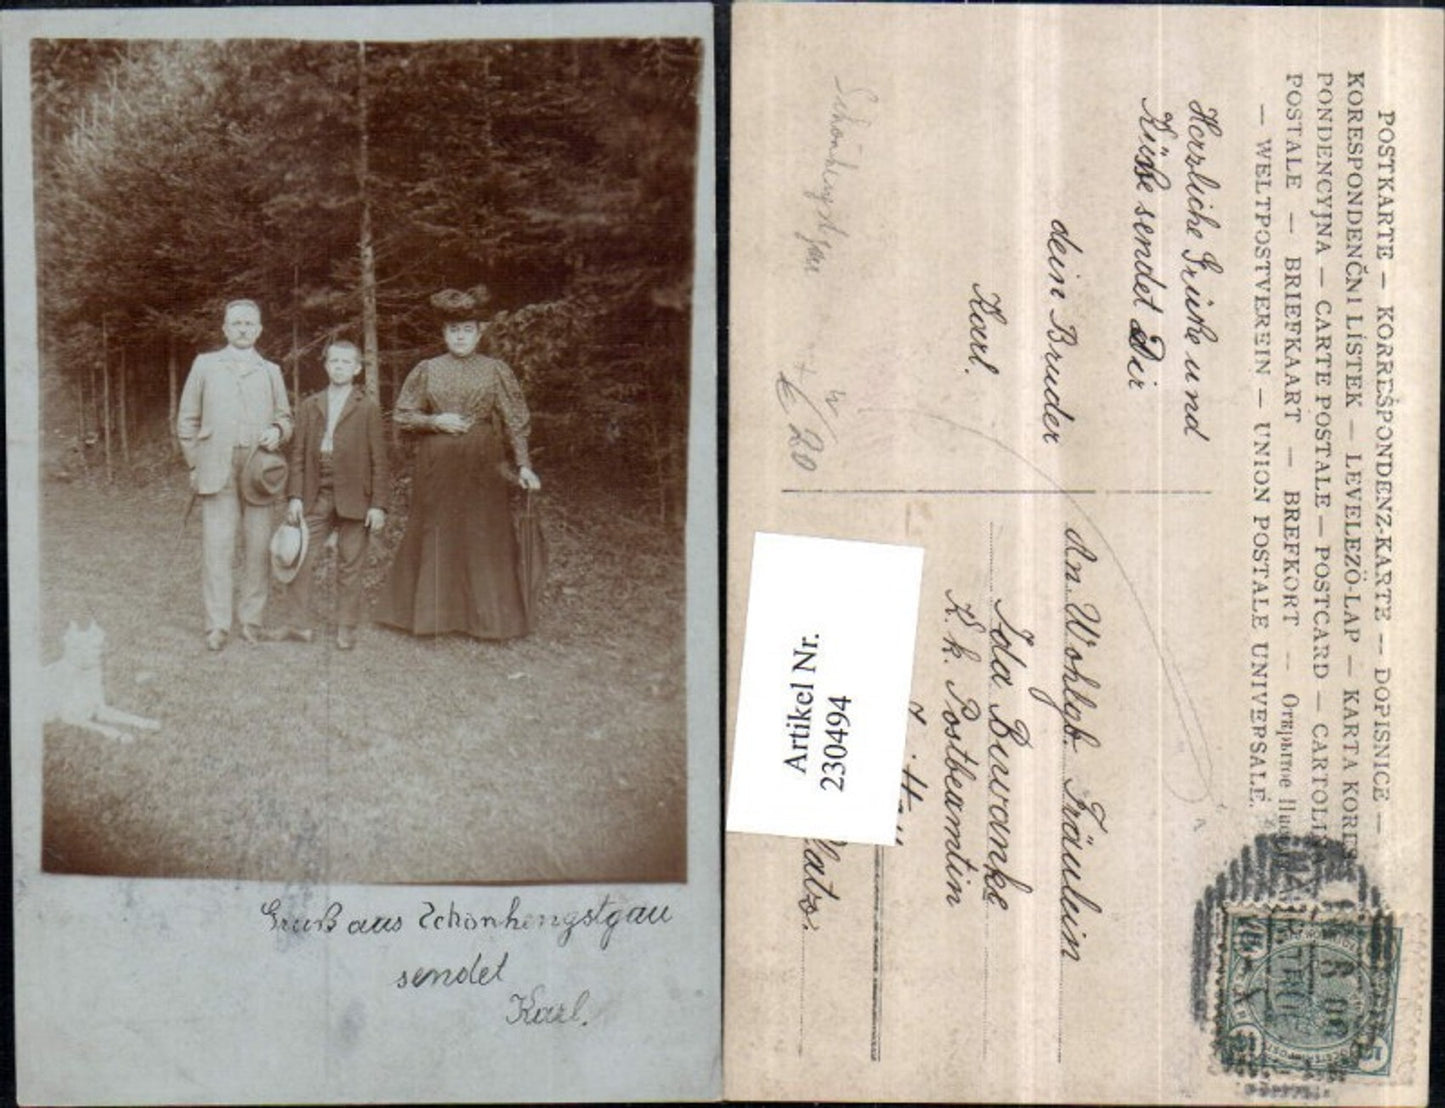 Gruß aus Schönhengstgau
sendet
Karl.
POSTKARTE — KORRESPONDENZ-KARTE — DOPISNICE —
KORESPONDENČNI LÍSTEK — LEVELEZŐ-LAP — KARTA KORES
PONDENCYJNA — CARTE POSTALE — POSTCARD — CARTOLI
POSTALE — BRIEFKAART — BREFKORT — Открытое
— WELTPOSTVEREIN — UNION POSTALE UNIVERSALE.
Herzliche Grüße und
Küsse sendet Dir
dein Bruder
Karl.
Schönhengstgau
20
An Wohlgb. Fräulein
Ida Burvanke
K. k. Postbeamtin
Artikel Nr.
230494
Platz.